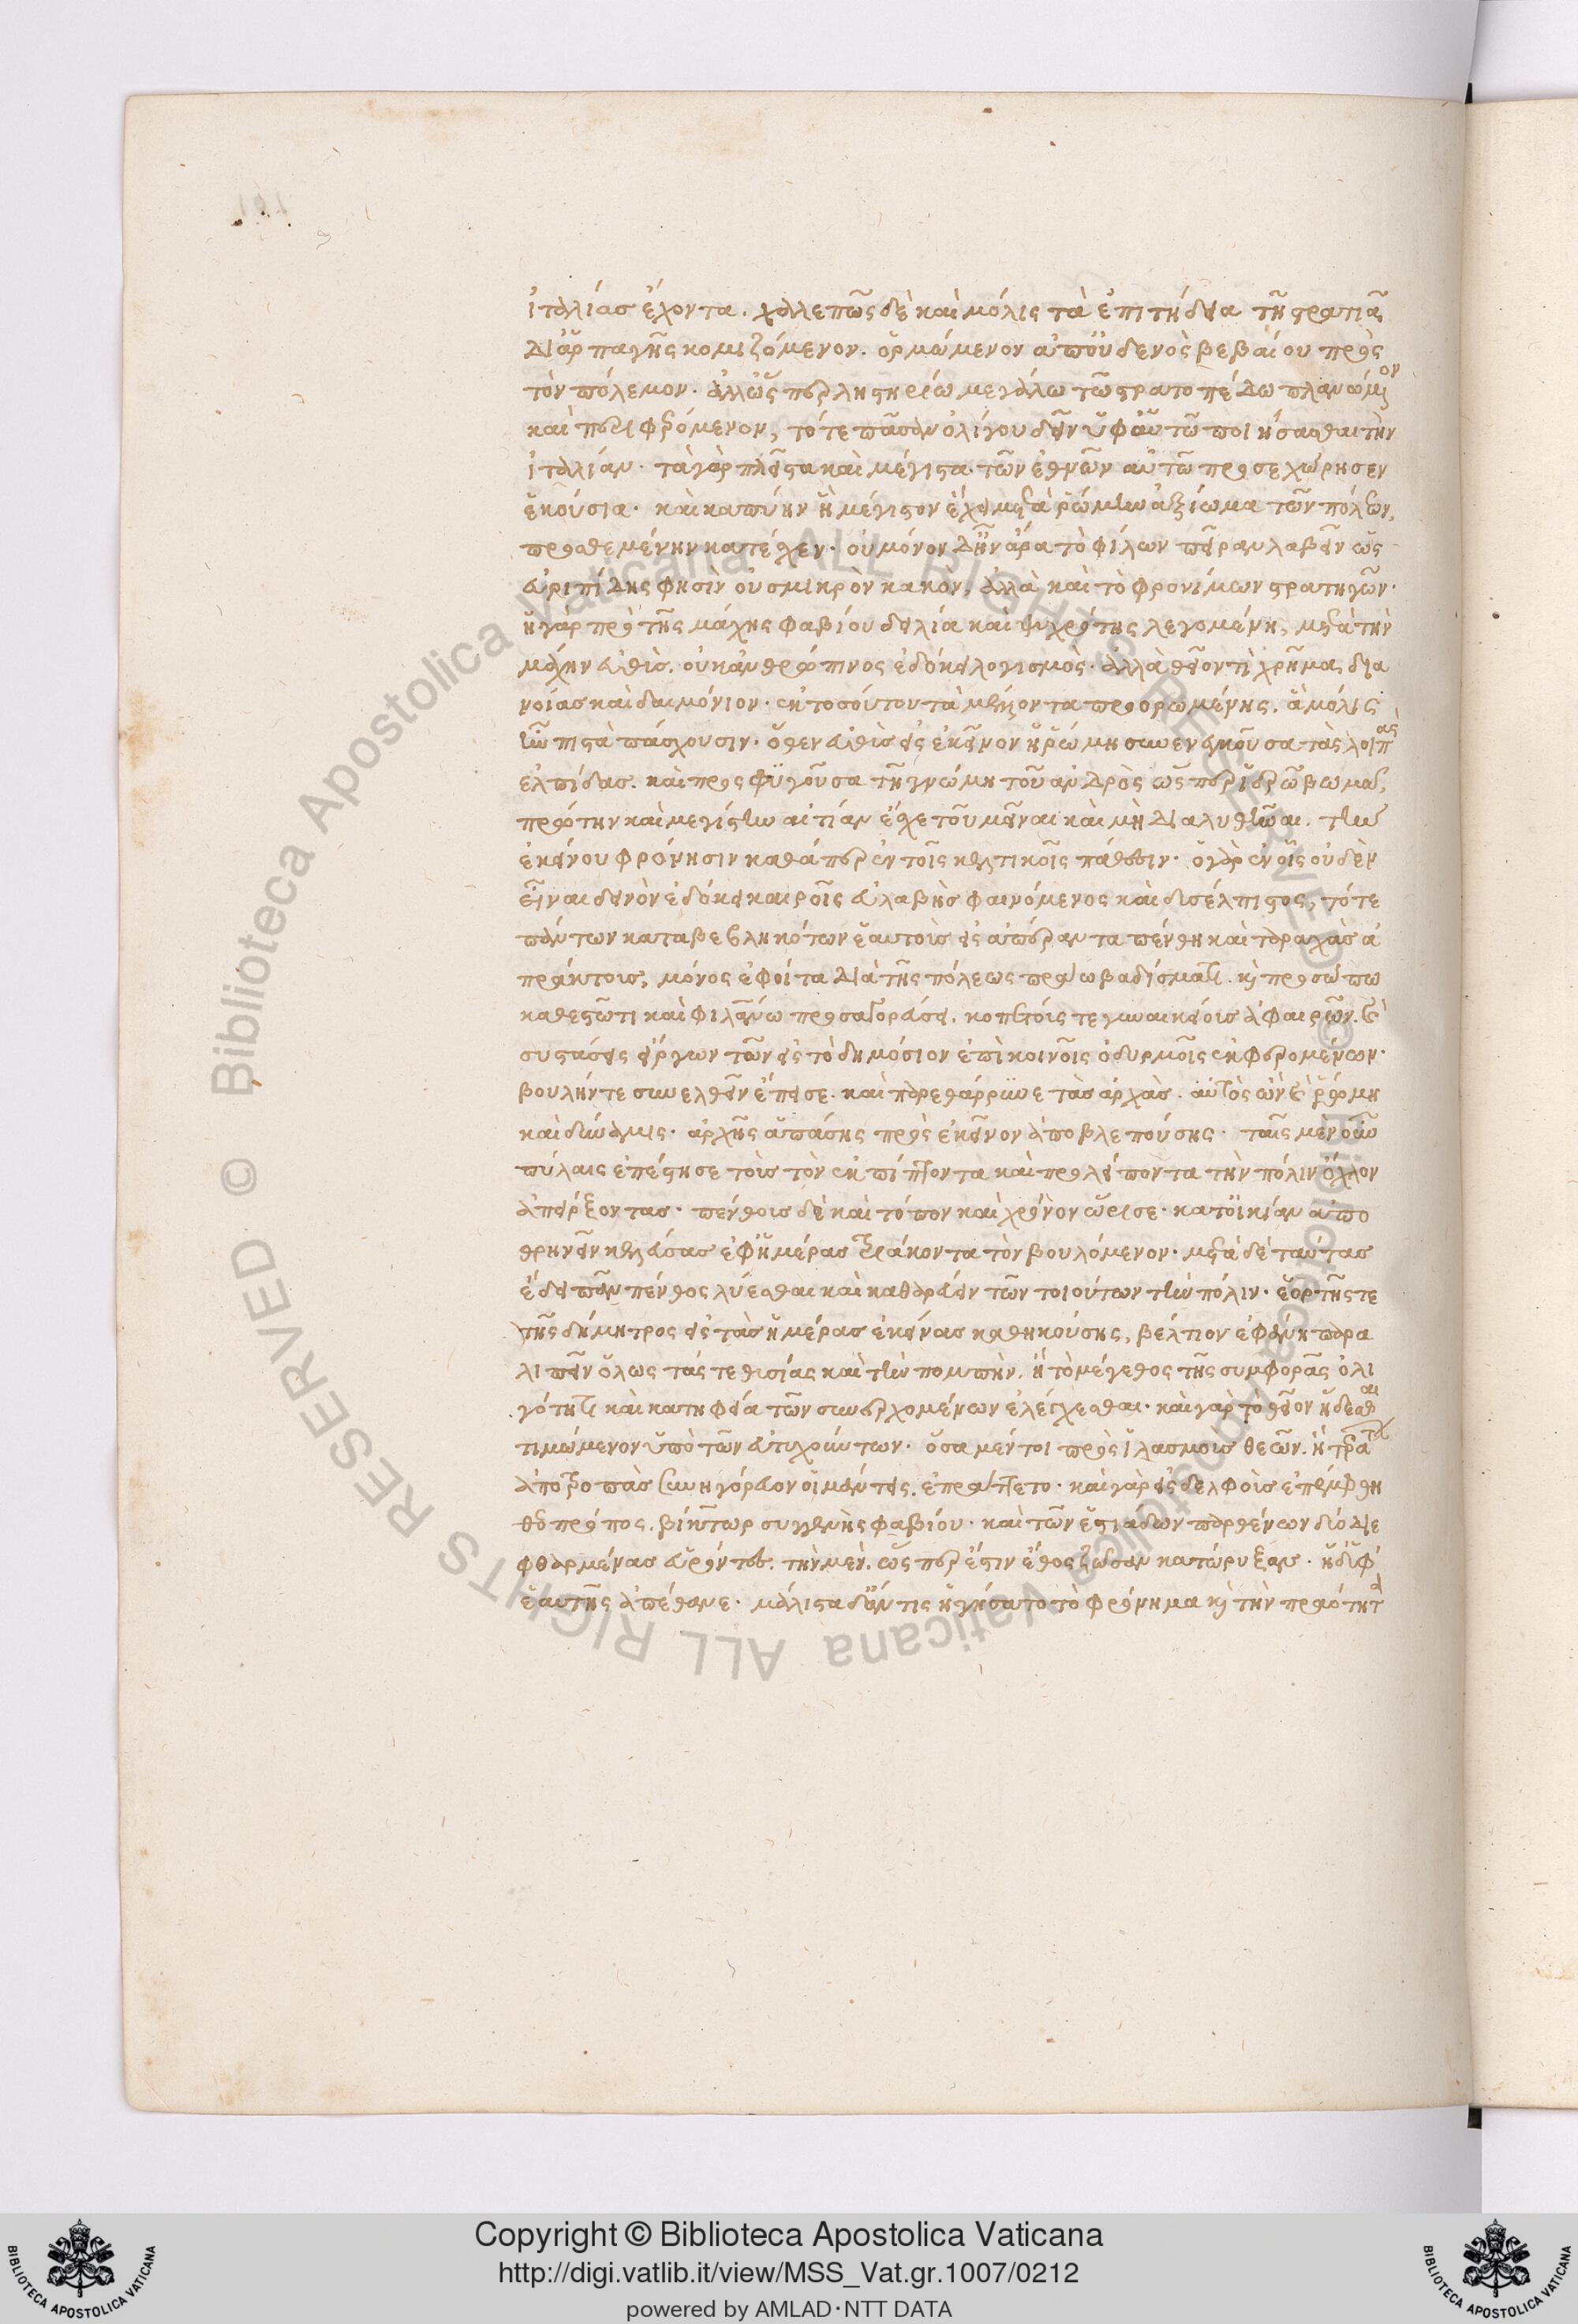 ἰταλίας ἔχοντα. χαλεπῶς δὲ καὶ μόλις τὰ ἐπιτήδεια τῆ στρατιᾶ
δι ἁρπαγῆς κομιζόμενον. ὁρμώμενον ἀπ οὐδενὸς βεβαίου πρὸς
τὸν πόλεμον. ἀλλ ὥσπερ ληστηρίω μεγάλω τῶ στρατοπέδω πλανώμενον
καὶ περιφερόμενον, τότε πᾶσαν ὀλίγου δεῖν ὑφ αὑτῶ ποιήσασθαι τὴν
ἰταλίαν. τὰ γὰρ πλεῖστα καὶ μέγιστα τῶν ἐθνῶν αὐτῶ προσεχώρησεν
ἑκούσια. καὶ καπύην ἣ μέγιστον ἔχει μετὰ ῥώμην ἀξίωμα τῶν πόλεων,
προσθεμένην κατέσχεν. οὐ μόνον δ ἦν ἄρα τὸ φίλων πεῖραν λαβεῖν ὡς
εὐριπίδης φησὶν οὐ σμικρὸν κακόν, ἀλλὰ καὶ τὸ φρονίμων στρατηγῶν.
ἡ γὰρ πρὸ τῆς μάχης φαβίου δειλία καὶ ψυχρότης λεγομένη, μετὰ τὴν
μάχην εὐθὺς. οὐκ ἀνθρώπινος ἐδόκει λογισμὸς. ἀλλὰ θεῖόν τι χρῆμα δια
νοίας καὶ δαιμόνιον. ἐκ τοσούτου τὰ μέλλοντα προορωμένης. ἃ μόλις
ἦν πιστὰ πάσχουσιν. ὅθεν εὐθὺς εἰς ἐκεῖνον ἡ ῥώμη συνενεγκοῦσα τὰς λοιπὰς
ἐλπίδας. καὶ προσφυγοῦσα τῆ γνώμη τοῦ ἀνδρὸς ὥσπερ ἱερῶ βωμῶ,
πρώτην καὶ μεγίστην αἰτίαν ἔσχε τοῦ μεῖναι καὶ μὴ διαλυθῆναι. τὴν
ἐκείνου φρόνησιν καθάπερ ἐν τοῖς κελτικοῖς πάθεσιν. ὁ γὰρ ἐν οἷς οὐδὲν
εἶναι δεινὸν ἐδόκει καιροῖς εὐλαβὴς φαινόμενος καὶ δυσέλπιστος, τότε
πάντων καταβεβληκότων ἑαυτοὺς εἰς ἀπέραντα πένθη καὶ ταραχὰς ἀ
πράκτους, μόνος ἐφοίτα διὰ τῆς πόλεως πράω βαδίσματι. καὶ προσώπω
καθεστῶτι καὶ φιλανθρώπω προσαγορεύσει. κοπετούς τε γυναικείους ἀφαιρῶν. καὶ
συστάσεις εἴργων τῶν εἰς τὸ δημόσιον ἐπὶ κοινοῖς ὀδυρμοῖς ἐκφερομένων.
βουλήν τε συνελθεῖν ἔπεισε. καὶ παρεθάρρυνε τὰς ἀρχὰς. αὐτὸς ὢν καὶ ῥώμη
καὶ δύναμις. ἀρχῆς ἁπάσης πρὸς ἐκεῖνον ἀποβλεπούσης. ταῖς μὲν οὖν
πύλαις ἐπέστησε τοὺς τὸν ἐκπίπτοντα καὶ προλείποντα τὴν πόλιν ὄχλον
ἀπείρξοντας. πένθους δὲ καὶ τόπον καὶ χρόνον ὥρισε. κατ οἰκίαν ἀπο
θρηνεῖν κελεύσας ἐφ ἡμέρας τριάκοντα τὸν βουλόμενον. μετὰ δὲ ταύτας
ἔδει πᾶν πένθος λύεσθαι καὶ καθαρεύειν τῶν τοιούτων τὴν πόλιν. ἑορτῆς τε
τῆς δήμητρος εἰς τὰς ἡμέρας ἐκείνας καθηκούσης, βέλτιον ἐφάνη παρα
λιπεῖν ὅλως τάς τε θυσίας καὶ τὴν πομπὴν. ἢ τὸ μέγεθος τῆς συμφορᾶς ὀλι
γότητι καὶ κατηφεία τῶν συνερχομένων ἐλέγχεσθαι. καὶ γὰρ τὸ θεῖον ἥδεσθαι
τιμώμενον ὑπὸ τῶν εὐτυχούντων. ὅσα μέντοι πρὸς ἱλασμοὺς θεῶν. ἢ τεράτων
ἀποτροπὰς συνηγόρευον οἱ μάντεις. ἐπράττετο. καὶ γὰρ εἰς δελφοὺς ἐπέμφθη
θεοπρόπος. βίκτωρ συγγενὴς φαβίου. καὶ τῶν ἑστιάδων παρθένων δύο διε
φθαρμένας εὑρόντες. τὴν μὲν. ὥσπερ ἐστὶν ἔθος ζῶσαν κατώρυξαν. ἡ δ ὑφ
ἑαυτῆς ἀπέθανε. μάλιστα δ ἄν τις ἠγάσατο τὸ φρόνημα καὶ τὴν πραότητα
© Biblioteca Apostolica Vaticana ALL RIGHTS RESERVED
© Biblioteca Apostolica Vaticana ALL RIGHTS RESERVED
Copyright © Biblioteca Apostolica Vaticana
http://digi.vatlib.it/view/MSS_Vat.gr.1007/0212
powered by AMLAD·NTT DATA
BIBLIOTECA APOSTOLICA VATICANA
BIBLIOTECA APOSTOLICA VATICANA